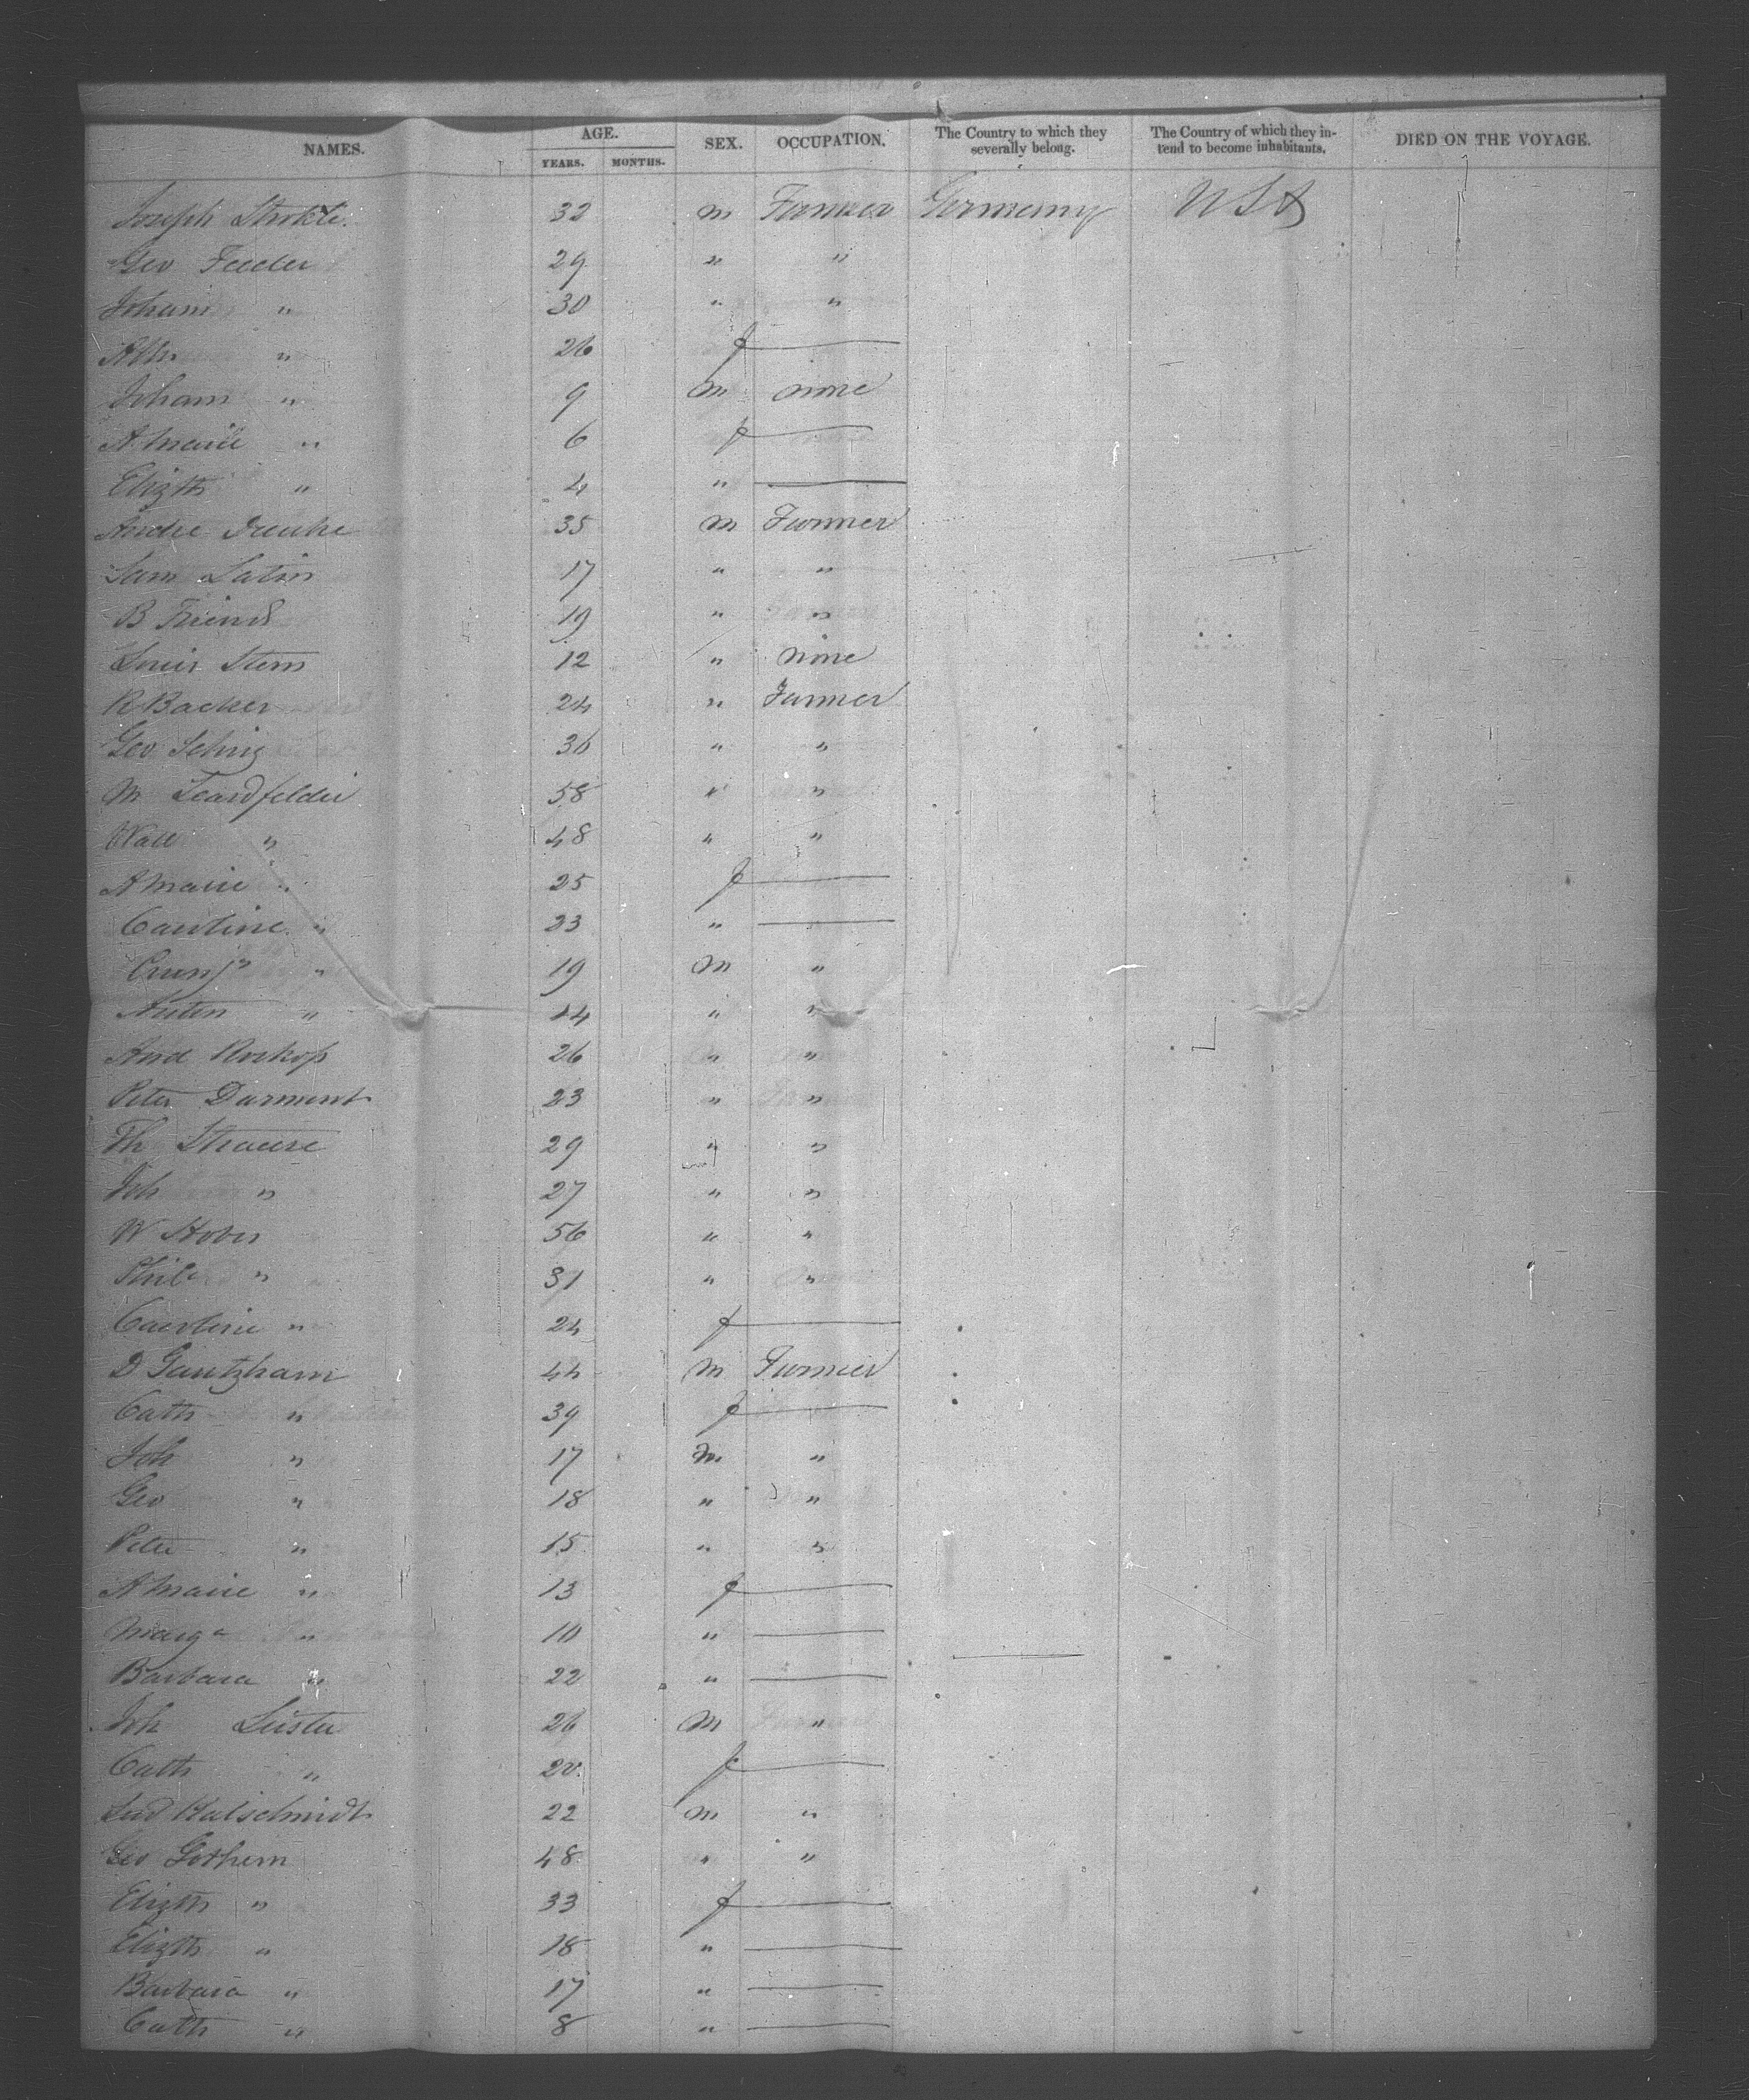 NAMES. AGE. YEARS. MONTHS. SEX. OCCUPATION. The Country to which they severally belong. The Country of which they intend to become inhabitants. DIED ON THE VOYAGE.
Joseph 32 m Farmer Germany USA
Geo Feeder 29 " "
Joham " 30 " "
" 26 f
Joham " 9 m none
A Marie " 6 f
Elizth " 4 "
Andre 35 m Farmer
Sam Latin 17 " "
B Friend 19 " "
Louis Stern 12 " none
R Backer 24 " Farmer
Geo 36 " "
M 58 " "
" 48 " "
A Marie " 25 f
Caroline " 23 "
" 19 m "
" 14 " "
And 26 " "
Peter Darmant 23 " "
Th 29 " "
Joh " 27 " "
W 56 " "
" 31 " "
Caroline " 24 f
D Guntzham 44 m Farmer
Cath " 39 f
Joh " 17 m "
Geo " 18 " "
Peter " 15 " "
A Marie " 13 f
Marga " 10 "
Barbara " 22 "
Joh 26 m "
Cath " 20 f
22 m "
Geo Gothern 48 " "
Elizth " 33 f
Elizth " 18 "
Barbara " 17 "
Cath " 8 "